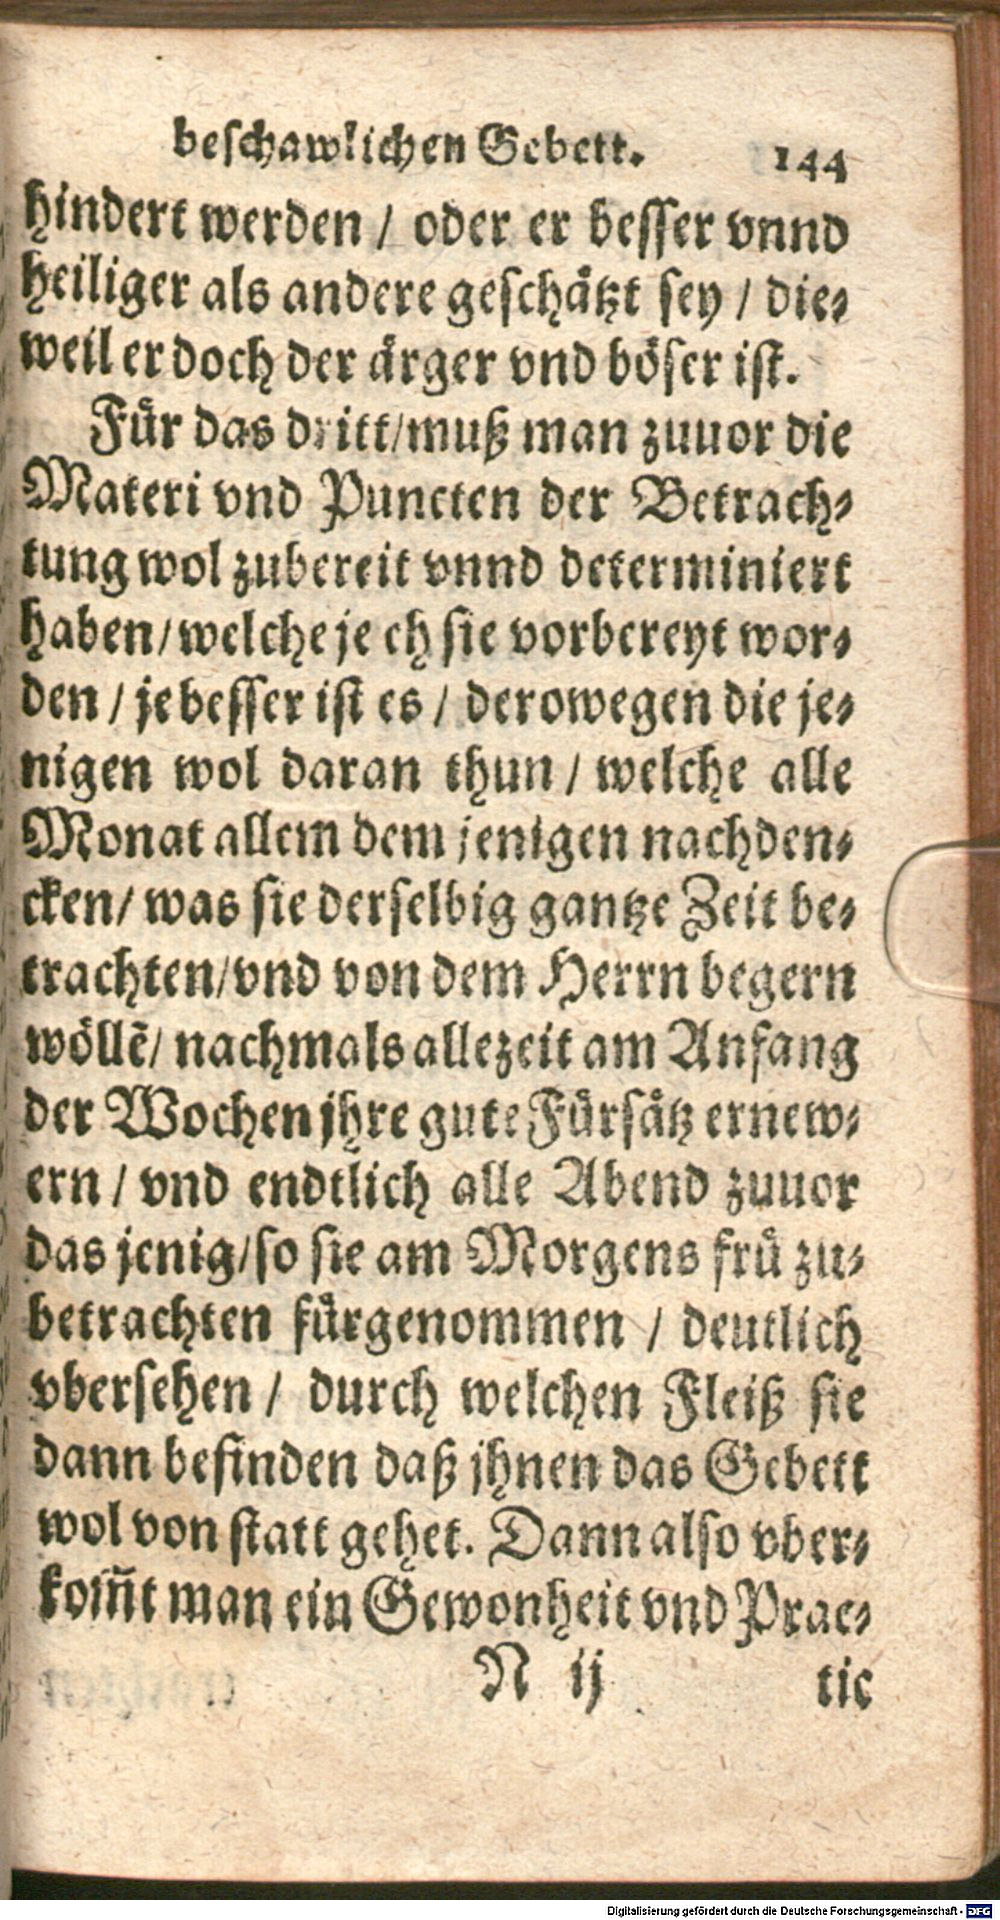 beschawlichen Gebett. 144
hindert werden / oder er besser vnnd
heiliger als andere geschåtzt sey / die⸗
weil er doch der årger vnd bôser ist.
Fůr das dritt / muß man zuuor die
Materi vnd Puncten der Betrach⸗
tung wol zubereit vnnd determiniert
haben / welche je eh sie vorbereyt wor⸗
den / je besser ist es / derowegen die je⸗
nigen wol daran thun / welche alle
Monat allem dem jenigen nachden⸗
cken / was sie derselbig gantze Zeit be⸗
trachten / vnd von dem Herrn begern
wôllẽ / nachmals allezeit am Anfang
der Wochen jhre gute Fůrsåtz ernew⸗
ern / vnd endtlich alle Abend zuuor
das jenig / so sie am Morgens frů zu⸗
betrachten fůrgenommen / deutlich
vbersehen / durch welchen Fleiß sie
dann befinden daß jhnen das Gebett
wol von statt gehet. Dann also vber⸗
kom̃t man ein Gewonheit vnd Prac⸗
N ij tic
Digitalisierung gefördert durch die Deutsche Forschungsgemeinschaft - DFG